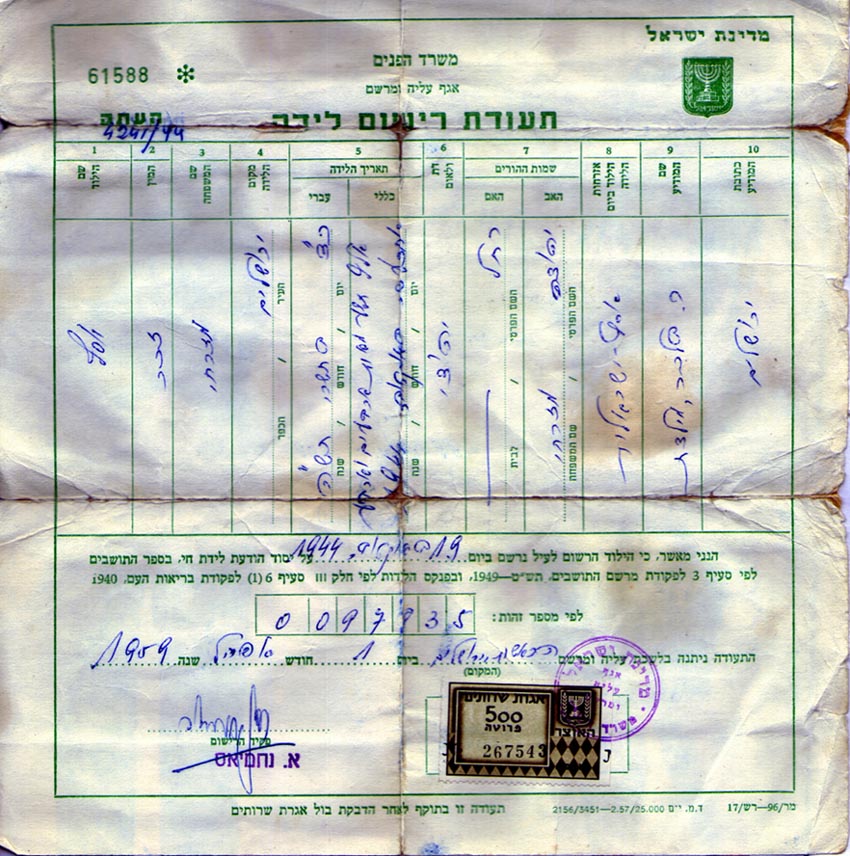 מדינת ישראל
משרד הפנים
61588 *
אגף עליה ומרשם
תעודת רישום לידה
העתק
4241/44
1 2 3 4 5 6 7 8 9 10
שם הילד
המין
שם המשפחה
מקום הלידה
תאריך הלידה
עברי
כללי
דת
ולאום
שמות ההורים
האם
האב
אזרחות הילד ביום הלידה
שם המודיע
כתובת המודיע
יוסף
זכר
מזרחי
ירושלים
העיר / הכפר
בתשרי תש"ה
יום / חודש / שנה
יום / חודש / שנה
יהודי
רחל
השם הפרטי / לבית
מזרחי
השם הפרטי / שם המשפחה
ירושלים
הנני מאשר, כי הילוד הרשום לעיל נרשם ביום 19 1944 על יסוד הודעת לידת חי, בספר התושבים
לפי סעיף 3 לפקודת מרשם התושבים, תש״ט—1949, ובפנקס הלדות לפי חלק III סעיף 6 (1) לפקודת בריאות העם, 1940
לפי מספר זהות: 0 0 9 7 8 3 5
התעודה ניתנה בלשכת עליה ומרשם ירושלים ביום 1 חודש אפריל שנה 1959
(המקום)
מדינת ישראל
אגף עליה ומרשם
משרד הפנים
אגרת שרותים
500
פרוטה
האוצר
267543
פקיד הרישום
א. נחמיאס
תעודה זו בתוקף לאחר הדבקת בול אגרת שרותים
ד.מ. י־ם 2156/3451—2.57/25.000
מר/96—רש/17